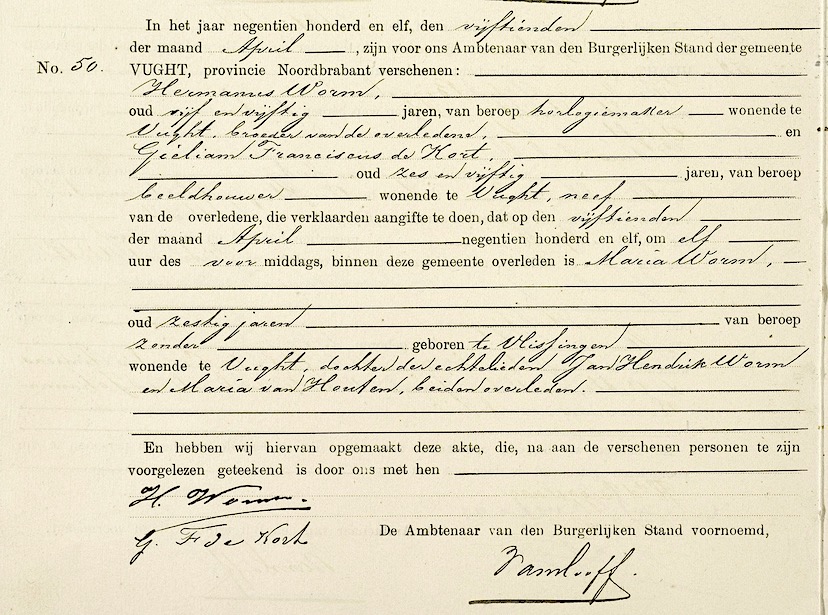 In het jaar negentien honderd en elf, den vijftienden
der maand April, zijn voor ons Ambtenaar van den Burgerlijken Stand der gemeente
No. 50. VUGHT, provincie Noordbrabant verschenen:
Hermanus Worm,
oud vijf en vijftig jaren, van beroep horlogiemaker wonende te
Vught, broeder van de overledene, en
Gieliam Franciscus de Kort,
oud zes en vijftig jaren, van beroep
beeldhouwer wonende te Vught, neef
van de overledene, die verklaarden aangifte te doen, dat op den vijftienden
der maand April negentien honderd en elf, om elf
uur des voor middags, binnen deze gemeente overleden is Maria Worm,
oud zestig jaren van beroep
zonder geboren te Vlissingen
wonende te Vught, dochter der echtelieden Jan Hendrik Worm
en Maria van Houten, beiden overleden.
En hebben wij hiervan opgemaakt deze akte, die, na aan de verschenen personen te zijn
voorgelezen geteekend is door ons met hen
H. Worm.
G. F de Kort
De Ambtenaar van den Burgerlijken Stand voornoemd,